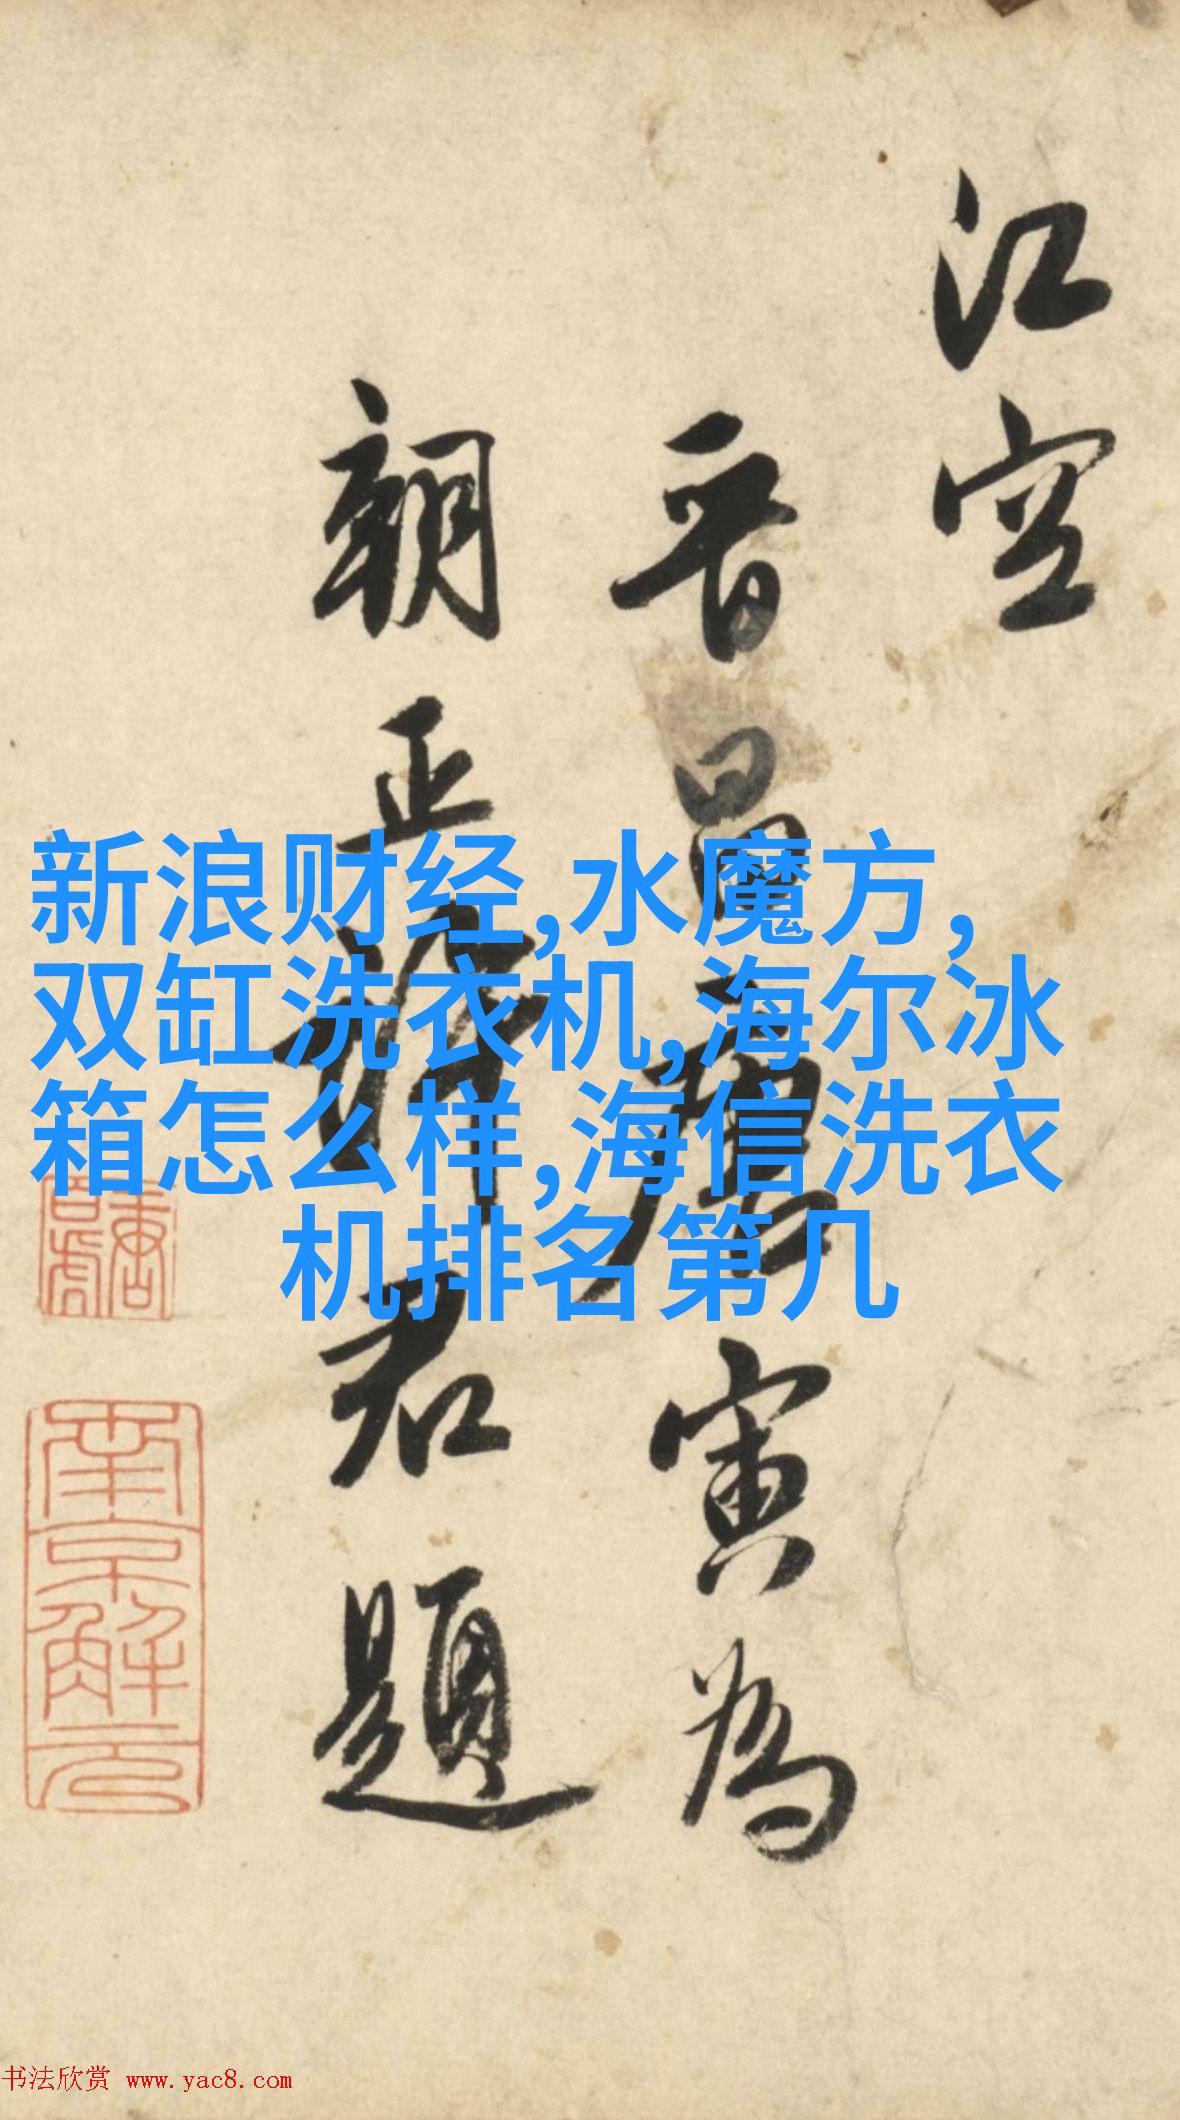 江空
晋昌唐寅為
朝正君題
唐白虎
南京解元
新浪财经,水魔方,
双缸洗衣机,海尔冰
箱怎么样,海信洗衣
机排名第几
书法欣赏 www.yac8.com